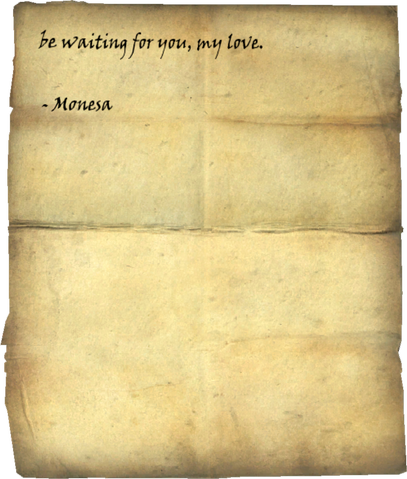 be waiting for you, my love.
- Monesa